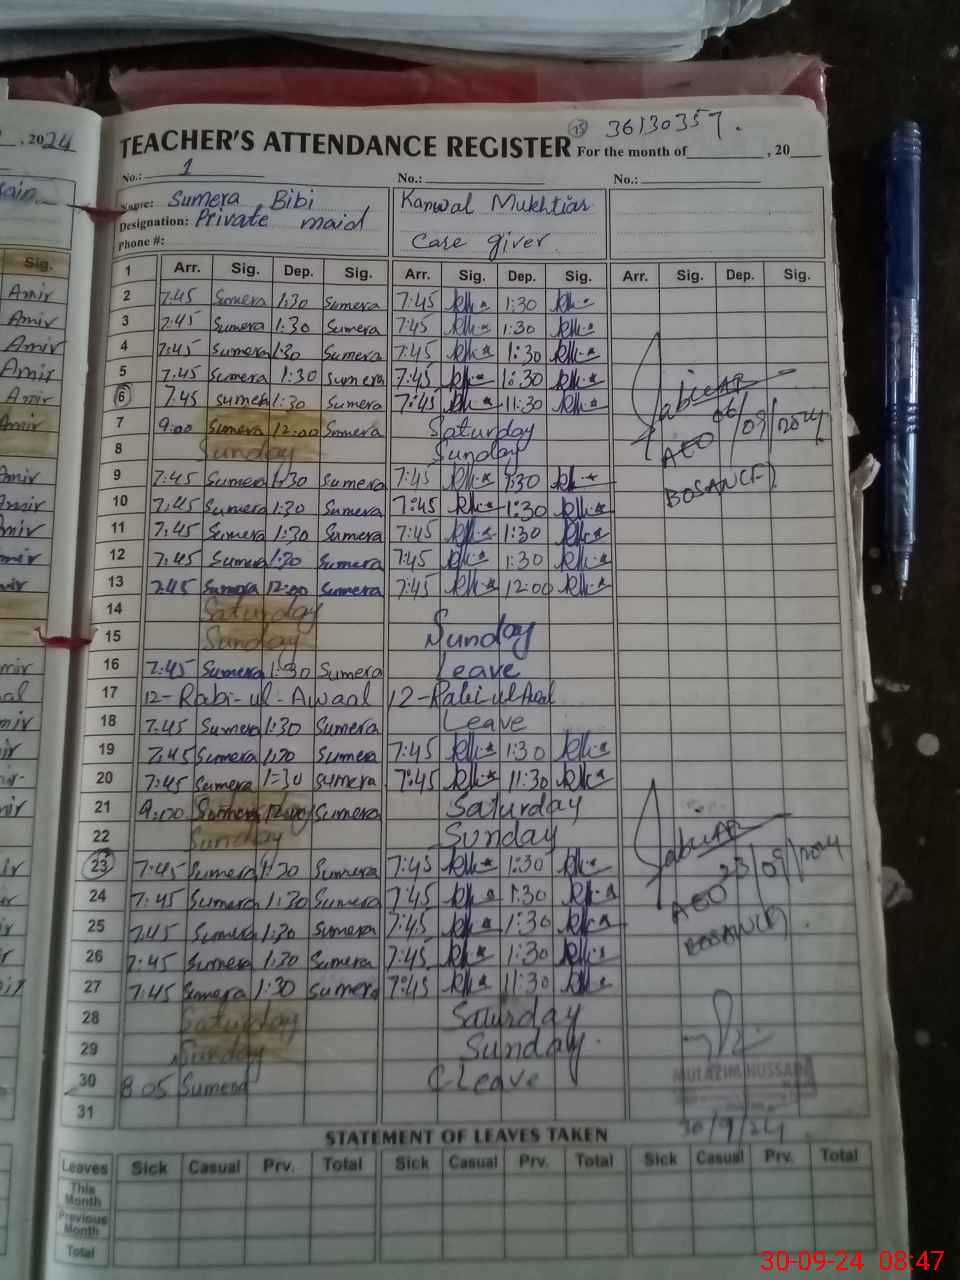 , 2024
36130357.
TEACHER'S ATTENDANCE REGISTER For the month of , 20
No.: 1 No.: No.:
Name: Sumera Bibi Kanwal Mukhtiar
Designation: Private maid
Phone #: Care giver
Sig. 1 Arr. Sig. Dep. Sig. Arr. Sig. Dep. Sig. Arr. Sig. Dep. Sig.
Amir 2 7:45 Sumera 1:30 Sumera 7:45 1:30
Amir 3 7:45 Sumera 1:30 Sumera 7:45 1:30
Amir 4 7:45 Sumera 1:30 Sumera 7:45 1:30
Amir 5 7:45 Sumera 1:30 Sumera 7:45 1:30
Amir 6 7:45 Sumera 1:30 Sumera 7:45 11:30
Amir 7 9:00 Sumera 12:00 Sumera Saturday
8 Sunday Sunday
06/09/2024
AEO
BOSAN(F)
Amir 9 7:45 Sumera 1:30 Sumera 7:45 1:30
Amir 10 7:45 Sumera 1:30 Sumera 7:45 1:30
Amir 11 7:45 Sumera 1:30 Sumera 7:45 1:30
Amir 12 7:45 Sumera 1:30 Sumera 7:45 1:30
Amir 13 7:45 Sumera 12:00 Sumera 7:45 12:00
14 Saturday
15 Sunday Sunday
Amir 16 7:45 Sumera 1:30 Sumera Leave
17 12-Rabi-ul-Awaal 12-Rabi-ul Awal
18 7:45 Sumera 1:30 Sumera Leave
19 7:45 Sumera 1:30 Sumera 7:45 1:30
20 7:45 Sumera 1:30 Sumera 7:45 11:30
21 9:00 Sumera 12:00 Sumera Saturday
22 Sunday Sunday
23 7:45 Sumera 1:30 Sumera 7:45 1:30
23/09/2024
AEO
BOSAN(F).
24 7:45 Sumera 1:30 Sumera 7:45 1:30
25 7:45 Sumera 1:30 Sumera 7:45 1:30
26 7:45 Sumera 1:30 Sumera 7:45 1:30
27 7:45 Sumera 1:30 Sumera 7:45 11:30
28 Saturday Saturday
29 Sunday Sunday
30 8:05 Sumera C Leave
MULAZIM HUSSAIN
31
30/9/24
STATEMENT OF LEAVES TAKEN
Leaves Sick Casual Prv. Total Sick Casual Prv. Total Sick Casual Prv. Total
This Month
Previous Month
Total
30-09-24 08:47